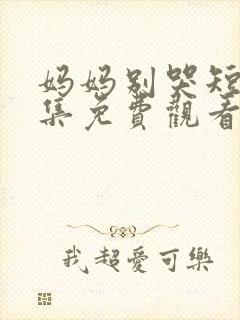 妈妈别哭短
集免費觀看
我超愛可樂